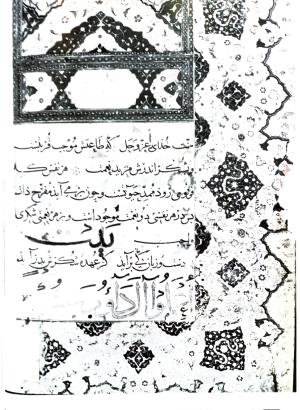 منت خدای را عز و جل که طاعتش موجب قربتست
و بشکر اندرش مزید نعمت هر نفسی که
فرو می رود ممد حیوتست و چون بر می آید مفرح ذات
پس در هر نفسی دو نعمت موجودست و بر هر نعمتی شکری
واجب
بیت
از دست و زبان که برآید کز عهده شکرش بدر آید